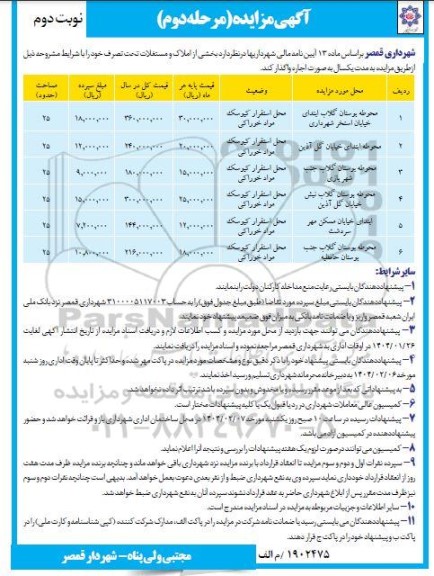 آگهی مزایده (مرحله دوم)
نوبت دوم
شهرداری قمصر براساس ماده ۱۳ آیین نامه مالی شهرداریها در نظر دارد بخشی از املاک و مستغلات تحت تصرف خود را با شرایط مشروحه ذیل
از طریق مزایده به مدت یکسال به صورت اجاره واگذار کند.
ردیف محل مورد مزایده وضعیت قیمت پایه هر ماه (ریال) قیمت کل در سال (ریال) مبلغ سپرده (ریال) مساحت (حدود)
۱ محوطه بوستان گلاب ابتدای خیابان استخر شهرداری محل استقرار کیوسک مواد خوراکی ۳۰,۰۰۰,۰۰۰ ۳۶۰,۰۰۰,۰۰۰ ۱۸,۰۰۰,۰۰۰ ۲۵
۲ محوطه ابتدای خیابان گل آذین محل استقرار کیوسک مواد خوراکی ۲۰,۰۰۰,۰۰۰ ۲۴۰,۰۰۰,۰۰۰ ۱۲,۰۰۰,۰۰۰ ۲۵
۳ محوطه بوستان گلاب جنب شهربازی محل استقرار کیوسک مواد خوراکی ۱۵,۰۰۰,۰۰۰ ۱۸۰,۰۰۰,۰۰۰ ۹,۰۰۰,۰۰۰ ۲۵
۴ محوطه بوستان گلاب نبش خیابان گل آذین محل استقرار کیوسک مواد خوراکی ۳۰۰,۰۰۰,۰۰۰ ۱۵,۰۰۰,۰۰۰ ۲۵
۵ ابتدای خیابان مسکن مهر سردشت محل استقرار کیوسک مواد خوراکی ۱۲,۰۰۰,۰۰۰ ۱۴۴,۰۰۰,۰۰۰ ۷,۲۰۰,۰۰۰ ۲۵
۶ محوطه بوستان گلاب جنب بوستان حافظیه محل استقرار کیوسک مواد خوراکی ۱۸,۰۰۰,۰۰۰ ۲۱۶,۰۰۰,۰۰۰ ۱۰,۸۰۰,۰۰۰ ۲۵
سایر شرایط:
۱- پیشنهاددهندگان بایستی رعایت منع مداخله کارکنان دولت را بنمایند.
۲- پیشنهاددهندگان بایستی مبلغ سپرده مورد تقاضا (طبق مبلغ جدول فوق) را به حساب ۳۱۰۰۰۰۵۱۱۷۰۰۳ شهرداری قمصر نزد بانک ملی
ایران شعبه قمصر واریز و یا ضمانت نامه بانکی به میزان فوق ضمیمه پیشنهاد خود نمایند.
۳- پیشنهاددهندگان می توانند جهت بازدید از محل مورد مزایده و کسب اطلاعات لازم و دریافت اسناد مزایده از تاریخ انتشار آگهی لغایت
۱۴۰۴/۰۱/۲۶ در اوقات اداری به شهرداری قمصر مراجعه نموده و اسناد مزایده را دریافت نمایند.
۴- پیشنهاددهندگان بایستی پیشنهاد خود را با ذکر دقیق نوع و مشخصات مورد مزایده در پاکت مهر شده و حداکثر تا پایان وقت اداری روز شنبه
مورخه ۱۴۰۴/۰۲/۰۶ به دبیرخانه محرمانه شهرداری تسلیم و رسید اخذ نمایند.
۵- به پیشنهاداتی که بعد از موعد مقرر رسیده و یا مخدوش و بدون سپرده باشد ترتیب اثر داده نخواهد شد.
۶- کمیسیون عالی معاملات شهرداری در رد یا قبول یک یا کلیه پیشنهادات مختار است.
۷- پیشنهادات رسیده در ساعت ۱۰ صبح روز یکشنبه مورخه ۱۴۰۴/۰۲/۰۷ در محل ساختمان اداری شهرداری باز و قرائت خواهد شد و حضور
پیشنهاددهنده در کمیسیون آزاد می باشد.
۸- کمیسیون می توانند در صورت لزوم یک هفته پیشنهادات را بررسی و نتیجه آنرا اعلام نمایند.
۹- سپرده نفرات اول و دوم و سوم مزایده تا انعقاد قرارداد با برنده مزایده نزد شهرداری باقی خواهد ماند و چنانچه برنده مزایده ظرف مدت هفت
روز از انعقاد قرارداد خودداری نماید سپرده وی به نفع شهرداری ضبط و از نفر بعدی دعوت بعمل خواهد آمد. بدیهی است چنانچه نفرات دوم و سوم
نیز ظرف مدت مقرر پس از ابلاغ شهرداری حاضر به عقد قرارداد نشوند سپرده آنان به نفع شهرداری ضبط خواهد شد.
۱۰- سایر اطلاعات و جزییات مربوطه به مزایده در اسناد مزایده مندرج است.
۱۱- پیشنهاددهندگان می بایستی رسید یا ضمانت نامه شرکت در مزایده را در پاکت الف، مدارک شرکت کننده (کپی شناسنامه و کارت ملی) را در
پاکت ب و پیشنهاد خود را در پاکت ج قرار دهند.
۱۹۰۲۴۷۵ / م الف
مجتبی ولی پناه - شهردار قمصر